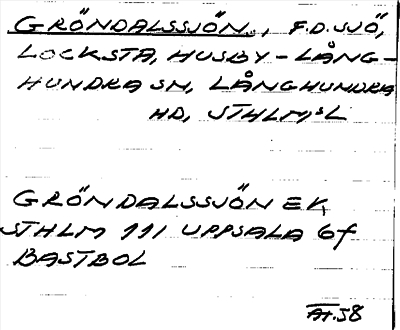 GRÖNDALSSJÖN, F.D. SJÖ,
LOCKSTA, HUSBY-LÅNG-
HUNDRA SN, LÅNGHUNDRA
HD, STHLM:S L
GRÖNDALSSJÖN EK
STHLM 111 UPPSALA 6f
BASTBOL
AH.58